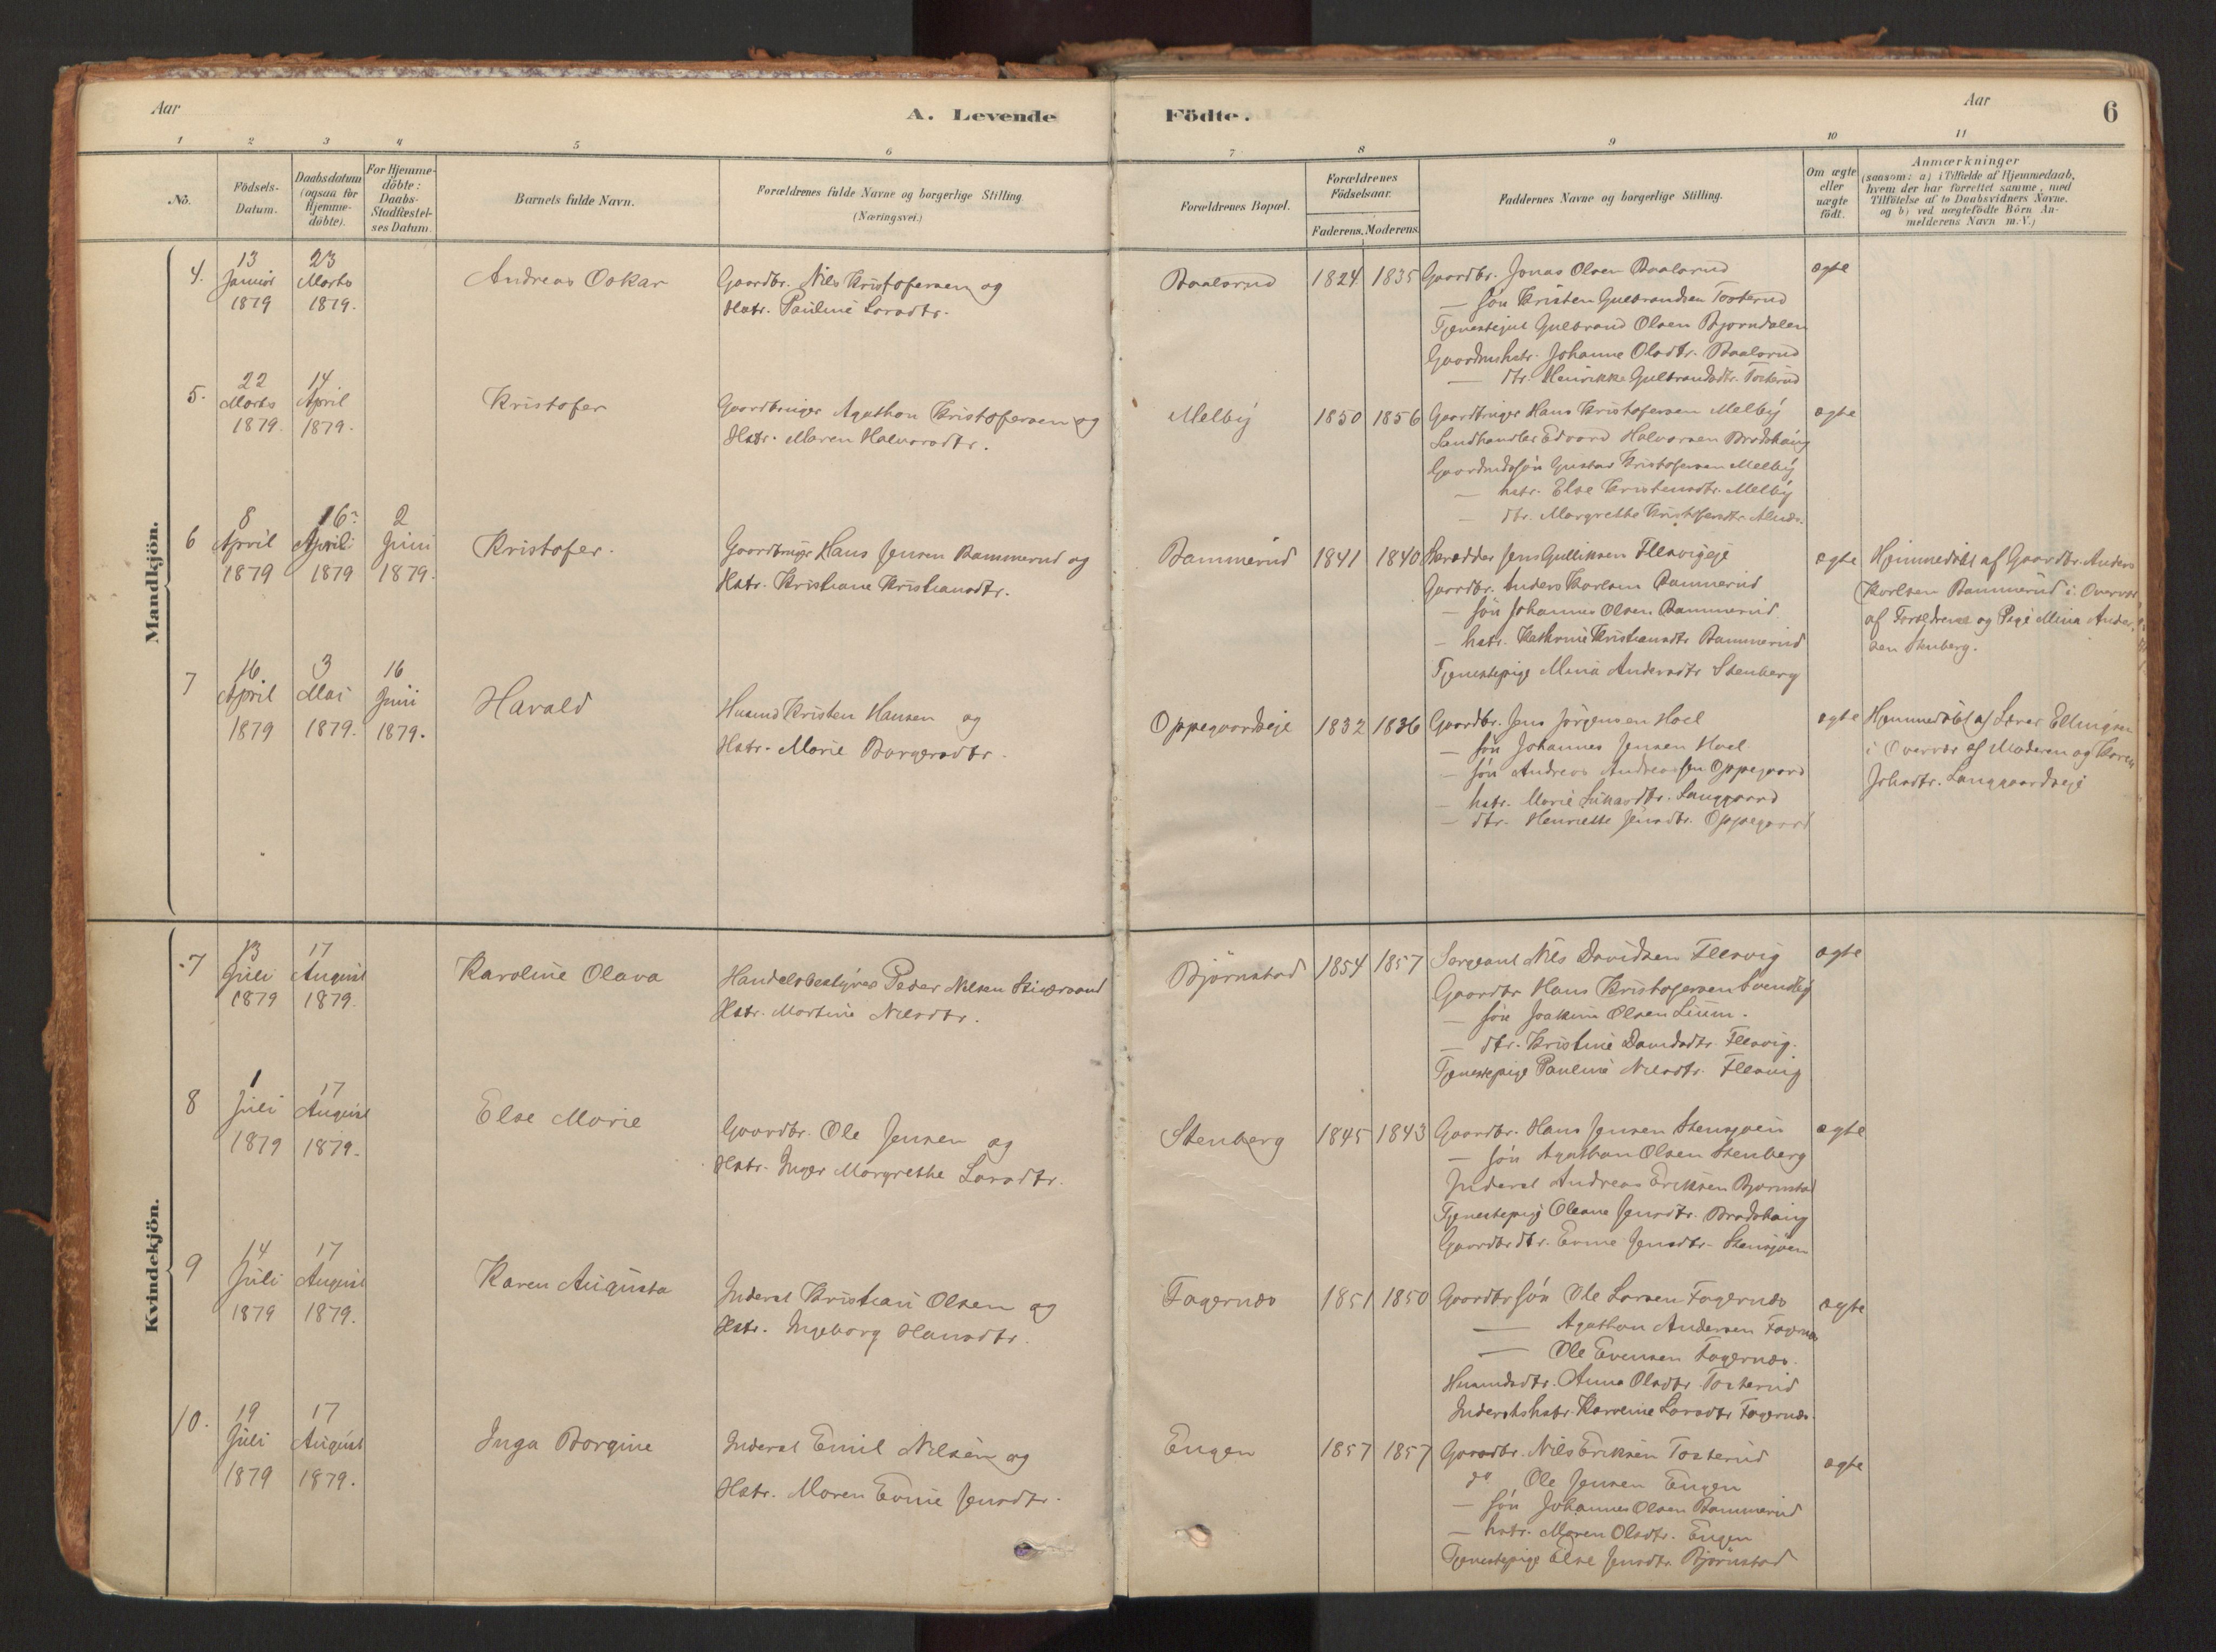 Aar
A. Levende
Födte.
Aar
6
1 2 3 4 5 6 7 8 9 10 11
No.
Födsels-
Datum.
Daabsdatum
(ogsaa for
Hjemme-
döbte).
For Hjemme-
döbte:
Daabs-
Stadfæstel-
ses Datum.
Barnets fulde Navn.
Forældrenes fulde Navne og borgerlige Stilling
(Næringsvei.)
Forældrenes Bopæl.
Forældrenes
Födselsaar.
Faderens. Moderens.
Faddernes Navne og borgerlige Stilling.
Om ægte
eller
uægte
födt.
Anmærkninger
(saasom: a) i Tilfælde af Hjemmedaab,
hvem der har forrettet samme, med
Tilföielse af to Daabsvidners Navne.
og b) ved uægtefödte Börn An-
melderens Navn m.V.)
Mandkjön.
4.
13
Januar
1879
23
Marts
1879.
Andreas Oskar
Gaardbr. Nils Kristofersen og
Hstr. Pauline Larsdtr.
Baalsrud
1824 1835
Gaardbr. Jonas Olsen Baalsrud
— søn Kristen Gulbrandsen Tosterud
Tjenestegut Gulbrand Olsen Bjørndalen
Gaardmshstr. Johanne Olsdtr. Baalsrud
— dtr. Henrikke Gulbrandsdtr. Tosterud
ægte
5.
22
Marts
1879.
14
April
1879.
Kristofer
Gaardbruger Agathon Kristofersen og
Hstr. Maren Halvorsdtr.
Melby
1850 1856
Gaardbruger Hans Kristofersen Melby
Landhandler Edvard Halvorsen Brødshaug
Gaardmdssøn Gustav Kristofersen Melby
— hstr. Else Kristensdtr. Melby
— dtr. Margrethe Kristofersdtr.
ægte
6
8
April
1879
16
April
1879
2
Juni
1879.
Kristofer.
Gaardbruger Hans Jensen Bammerud og
Hstr. Kristiane Kristiansdtr.
Bammerud
1841 1840
Skrædder Jens Gulliksen Flesvigeje
Gaardbr. Anders Karlsen Bammerud
— søn Johannes Olsen Bammerud
— hstr. Kathrine Kristiansdtr Bammerud
Tjenestepige Mina Andersdtr Stenberg
ægte
Hjemmedøbt af Gaardbr. Anders
Karlsen Bammerud i Overvær
af Forældrene og Pige Mina Ander-
sen Stenberg.
7
16.
April
1879
3
Mai
1879.
16
Juni
1879.
Harald
Husmd Kristen Hansen og
Hstr. Marie Borgersdtr.
Oppegaardseje
1832 1836
Gaardbr. Jens Jørgensen Hoel
— søn Johannes Jensen Hoel
— søn Andreas Andreassen Oppegaard
— hstr. Marie Lukasdtr. Langgaard
— dtr. Henriette Jensdtr. Oppegaard
ægte
Hjemmedøbt af Lærer Ellingsen
i Overvær af Moderen og Karen
Johsdtr. Langgaardseje
Kvindekjön.
7
13
Juli
1879
17
August
1879.
Karoline Olava
Handelsbestyrer Peder Nilsen
Hstr. Martine Nilsdtr.
Bjørnstad
1854 1857
Sergeant Nils Davidsen Flesvig
Gaardbr Hans Kristofersen Svendby
— søn Joakim Olsen Lium.
— dtr. Kristine Davidsdtr. Flesvig.
Tjenestepige Pauline Nilsdtr. Flesvig
ægte
8
1
Juli
1879
17
August
1879.
Else Marie
Gaardbr. Ole Jensen og
Hstr. Inger Margrethe Larsdtr.
Stenberg
1845 1843
Gaardbr. Hans Jensen Stensjøen
— søn Agathon Olsen Stenberg
Inderst Andreas Eriksen Bjørnstad
Tjenestepig Oleane Jensdtr. Brødshaug
Gaardbrdtr. Evine Jensdtr. Stensjøen
ægte
9
14
Juli
1879
17
August
1879.
Karen Augusta
Inderst Kristian Olsen og
Hstr. Ingeborg Hansdtr.
Fagernæs
1851 1850
Gaardbrsøn Ole Larsen Fagernæs
— Agathon Andersen Fagernæs
— Ole Evensen Fagernæs.
Husmdsdtr. Anna Olsdtr Tosterud
Inderstshstr. Karoline Larsdtr Fagernæs.
ægte
10.
19
Juli
1879
17
August
1879.
Inga Borgine
Inderst Emil Nilsen og
Hstr. Maren Evine Jensdtr.
Engen
1857 1857
Gaardbr. Nils Eriksen Tosterud
do Ole Jensen Engen
— søn Johannes Olsen Bammerud
— hstr. Maren Olsdtr. Engen
Tjenestepige Else Jensdtr Bjørnstad
ægte